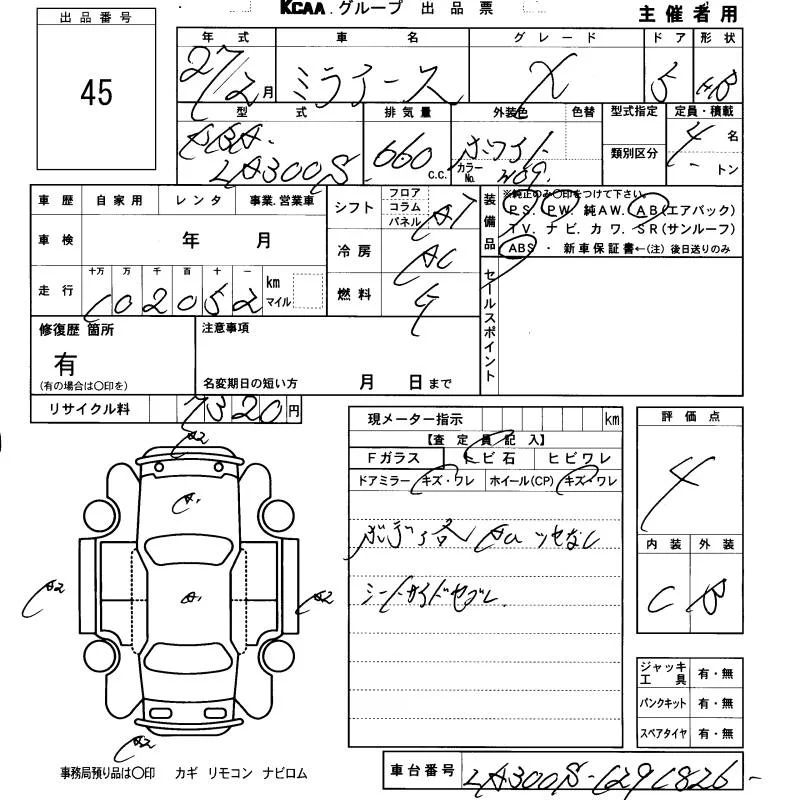 KCAA.グループ 出品票
主催者用
出品番号
45
年式 車名 グレード ドア 形状
27/2月 ミライース X 5 HB
型式 排気量 外装色 色替 型式指定 定員・積載
DBA-LA300S 660c.c. ホワイト カラーNo. W09 類別区分 4名 - トン
車歴 自家用 レンタ 事業.営業車
車検 年 月
走行 十万 万 千 百 十 一 km マイル
102052
シフト フロア コラム パネル AT
冷房 AC
燃料 G
装備品
※純正のみ○印をつけて下さい。
PS. PW. 純AW. AB(エアバック)
TV. ナビ. カワ. SR(サンルーフ)
ABS ・ 新車保証書←(注) 後日送りのみ
セールスポイント
修復歴 箇所
有
(有の場合は○印を)
注意事項
名変期日の短い方 月 日まで
リサイクル料 7320円
現メーター指示 km
【査定員記入】
Fガラス トビ石 ヒビワレ
ドアミラー キズ・ワレ ホイール(CP) キズ・ワレ
シートサイドヤブレ
評価点
4
内装 外装
C B
ジャッキ工具 有・無
パンクキット 有・無
スペアタイヤ 有・無
A2
A1
A2 A1 A2
A2
事務局預り品は○印 カギ リモコン ナビロム
車台番号 LA300S-1291826